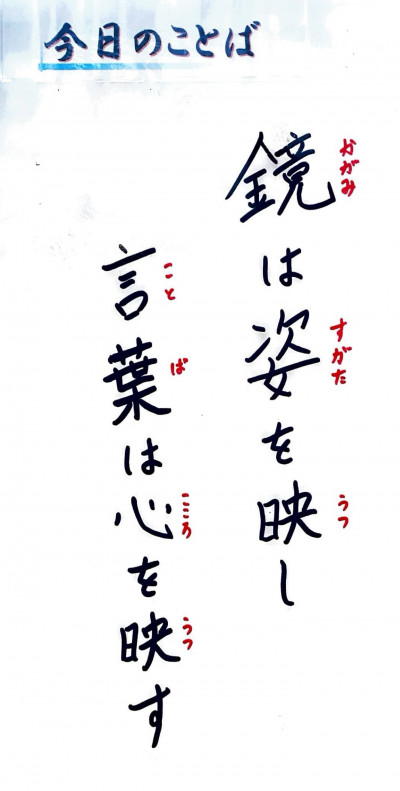 今日のことば
鏡は姿を映し
かがみ
すがた
うつ
言葉は心を映す
ことば
こころ
うつ